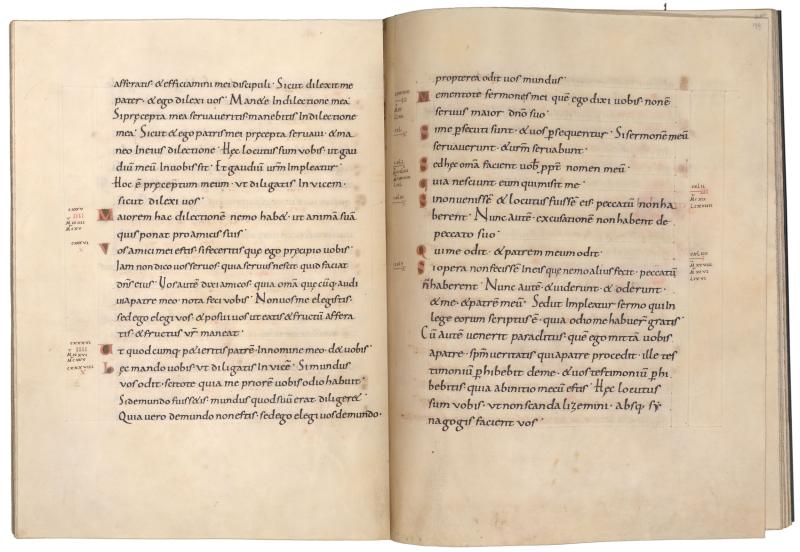 afferatis · & efficiamini mei discipuli · Sicut dilexit me
pater · & ego dilexi uos · Man&e In dilectione mea ·
Si pręcepta mea seruaueritis manebitis In dilectione
mea · Sicut & ego patris mei pręcepta seruaui · & ma
neo In eius dilectione · Hęc locutus sum uobis · ut gau
diū meū In uobis sit · Et gaudiū urm̄ Impleatur ·
Hoc ē pręceptum meum · ut diligatis In uicem ·
sicut dilexi uos ·
Maiorem hac dilectionē nemo hab& · ut animā suā
quis ponat pro amicis suis ·
Vos amici mei estis · si feceritis quę ego pręcipio uobis ·
Iam non dico uos seruos · quia seruus nescit quid faciat
dn̄s eius · Vos autē dixi amicos · quia omā quęcūq · audi
ui a patre meo · nota feci uobis · Non uos me elegistis ·
sed ego elegi uos · & posui uos ut eatis & fructū affera
tis · & fructus ur̄ maneat ·
Vt quodcumq · petieritis patrē · In nomine meo · d& uobis ·
Hęc mando uobis · ut diligatis In uicē · Si mundus
uos odit · scitote quia me priorē uobis odio habuit ·
Si de mundo fuiss&is · mundus quod suū erat diliger& ·
Quia uero de mundo non estis · sed ego elegi uos de mundo ·
propterea odit uos mundus ·
Mementote sermonis mei quē ego dixi uobis · non ē
seruus maior dn̄o suo ·
Si me p̄secuti sunt · & uos p̄sequentur · Si sermonē meū
seruauerunt · & urm̄ seruabunt ·
Sed hęc omā facient uob̄ ppt̄ nomen meū ·
quia nesciunt eum qui misit me ·
Si non uenissē & locutus fuissē eis · peccatū non ha
berent · Nunc autē · excusationē non habent de
peccato suo ·
Qui me odit · & patrem meum odit ·
Si opera non fecissē In eis quę nemo alius fecit · peccatū
n̄ haberent · Nunc autē · & uiderunt · & oderunt ·
& me · & patrē meū · Sed ut Impleatur sermo qui In
lege eorum scriptus ē · quia odio me habuer̄ gratis ·
Cū autē uenerit paraclitus · quē ego mittā uobis
a patre · sp̄m ueritatis qui a patre procedit · ille tes
timoniū p̄hibebit de me · & uos testimoniū p̄hi
bebitis · quia ab initio mecū estis · Hęc locutus
sum uobis · ut non scandalizemini · absq · sy
nagogis facient uos ·